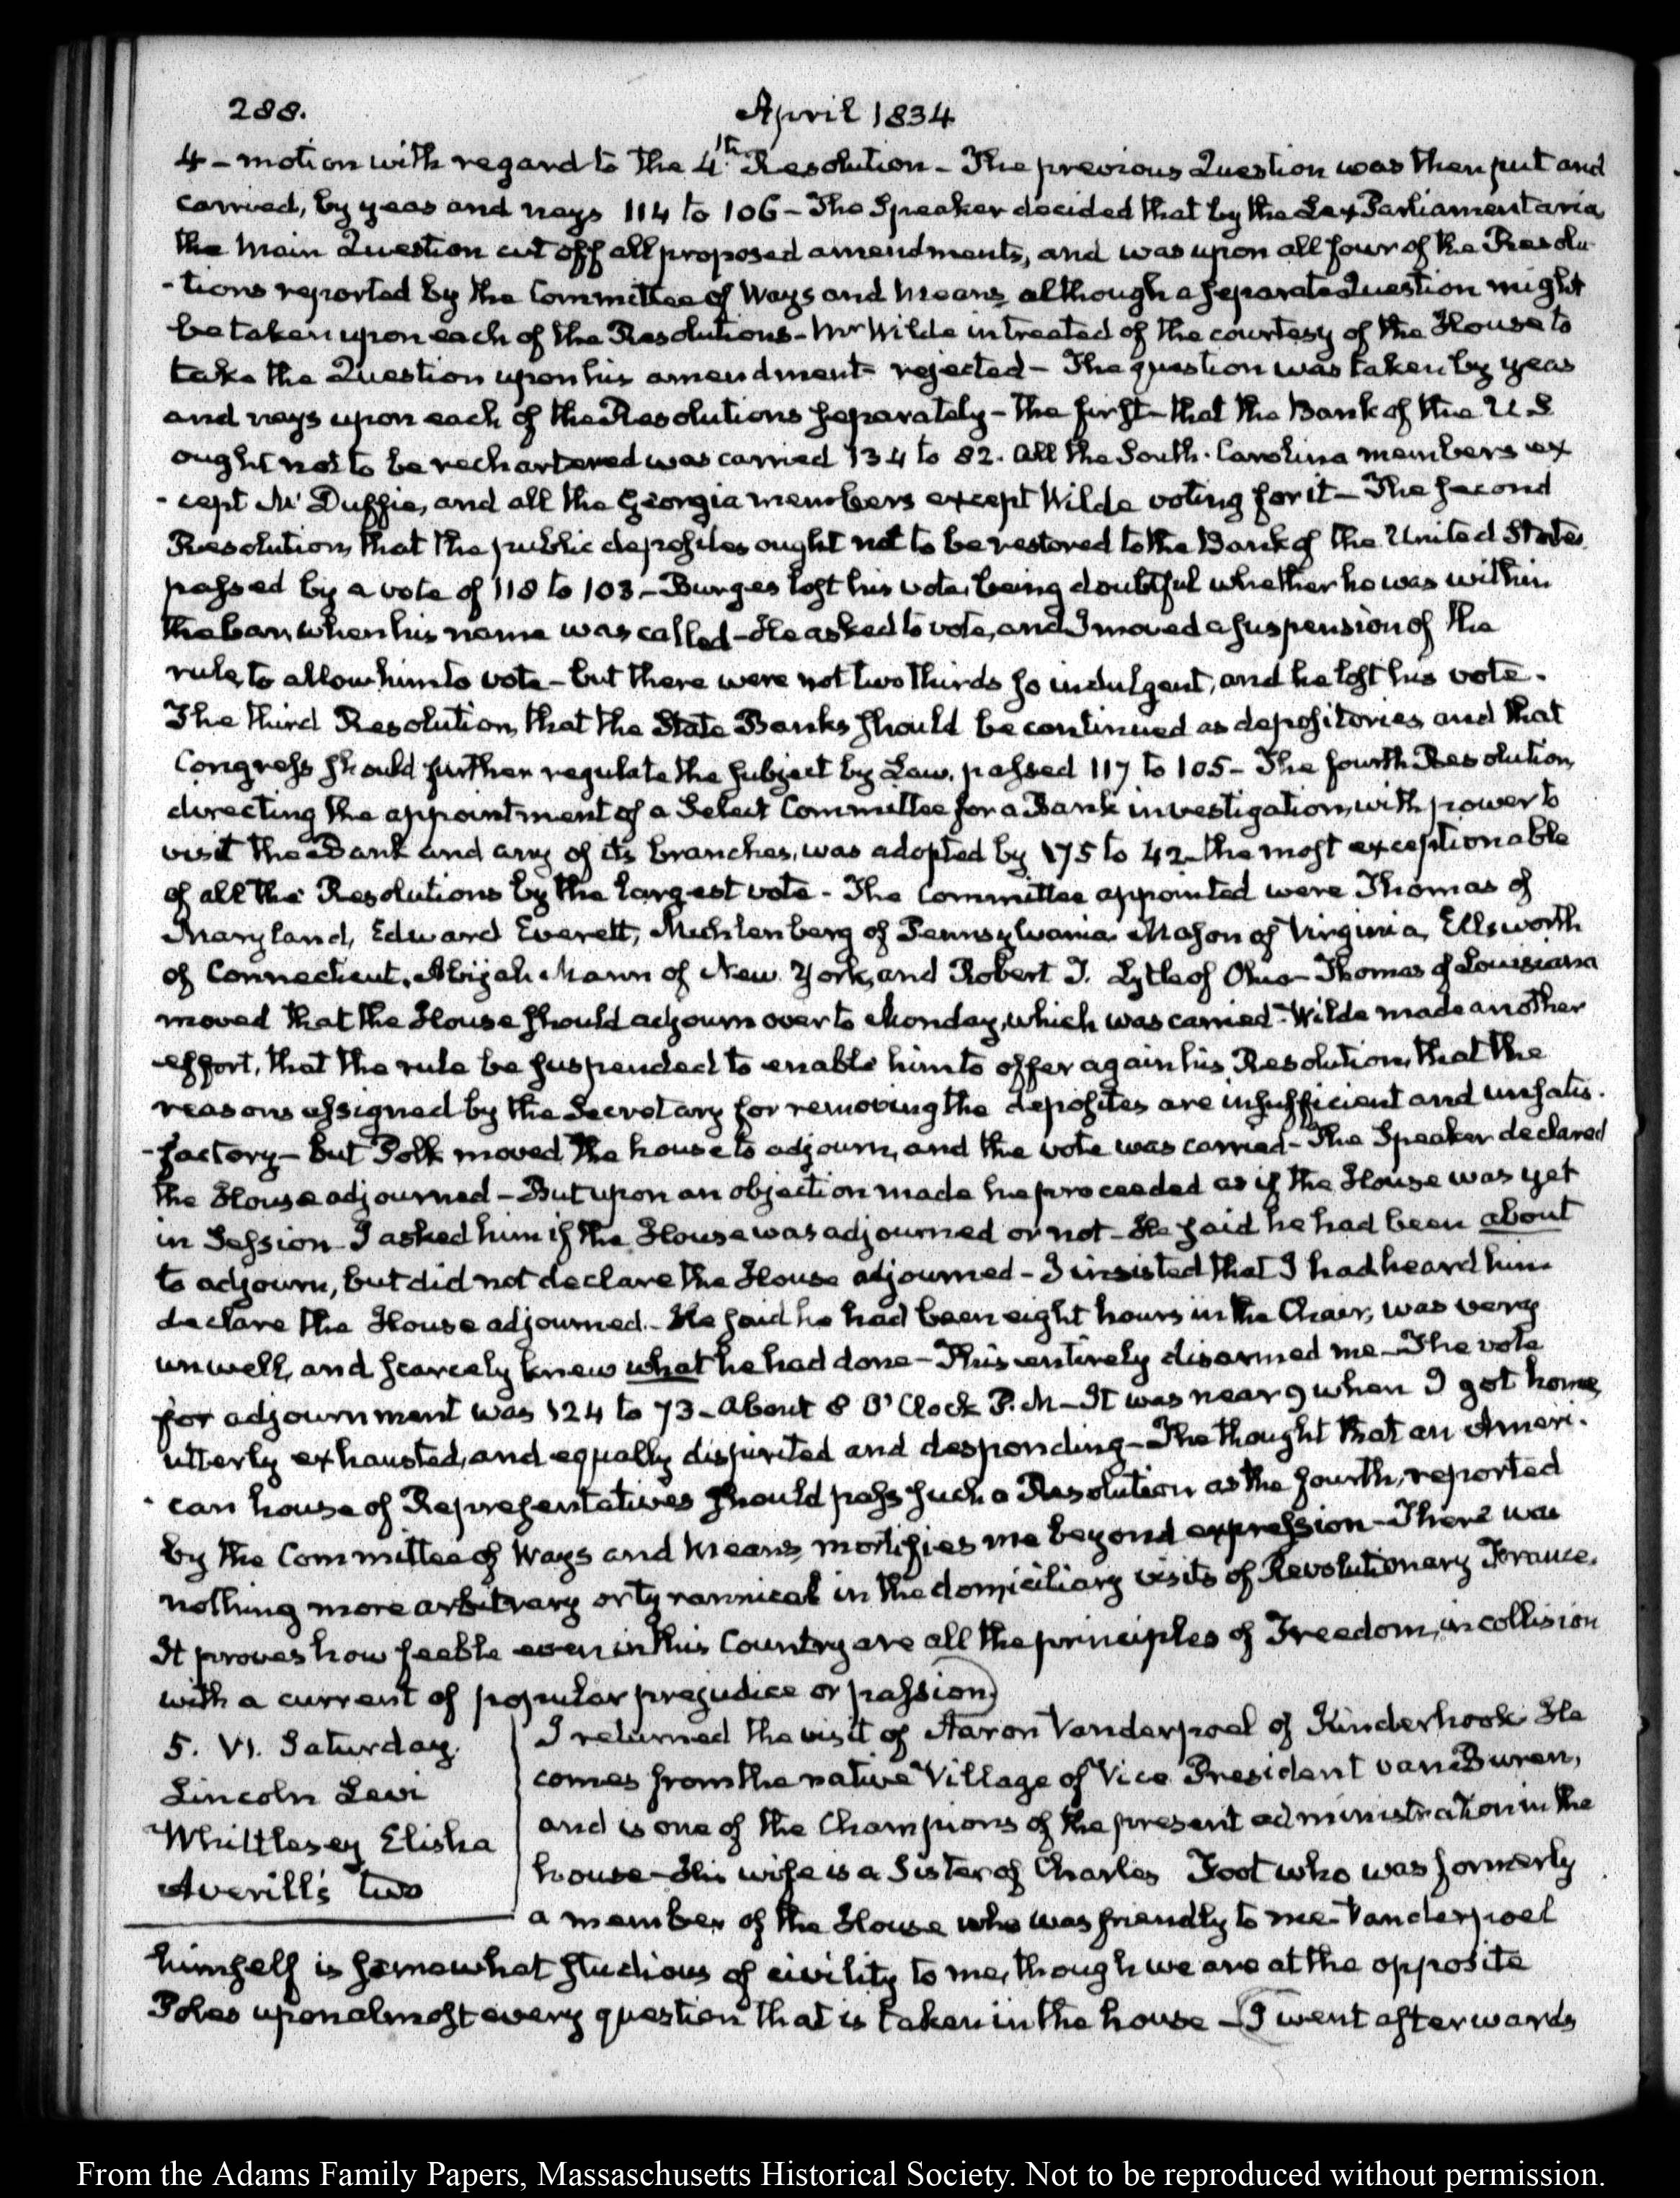 288. April 1834
4 - motion with regard to the 4th Resolution - The previous Question was then put and
carried, by yeas and nays 114 to 106 - The Speaker decided that by the Lex Parliamentaria,
the main Question cut off all proposed amendments, and was upon all four of the Resolu-
-tions reported by the Committee of Ways and Means although a separate Question might
be taken upon each of the Resolutions - Mr Wilde intreated of the courtesy of the House to
take the Question upon his amendment rejected - The question was taken by yeas
and nays upon each of the Resolutions separately - the first - that the Bank of the U.S
ought not to be rechartered was carried 134 to 82. all the South-Carolina members ex
-cept McDuffie, and all the Georgia members except Wilde voting for it - The second
Resolution, that the public deposites ought not to be restored to the Bank of the United States
passed by a vote of 118 to 103 - Burges lost his vote, being doubtful whether he was within
the bar, when his name was called - He asked to vote, and I moved a suspension of the
rule, to allow him to vote - but there were not two thirds so indulgent, and he lost his vote.
The third Resolution, that the State Banks should be continued as depositories and that
Congress should further regulate the subject by Law, passed 117 to 105 - The fourth Resolution,
directing the appointment of a Select Committee for a Bank investigation, with power to
visit the Bank and any of its branches, was adopted by 175 to 42 - the most exceptionable
of all the Resolutions by the largest vote - The Committee appointed were Thomas of
Maryland, Edward Everett, Muhlenberg of Pennsylvania Mason of Virginia, Ellsworth
of Connecticut, Abijah Mann of New York, and Robert T. Lytle of Ohio - Thomas of Louisiana
moved that the House should adjourn over to Monday, which was carried - Wilde made another
effort, that the rule be suspended to enable him to offer again his Resolution, that the
reasons assigned by the Secretary for removing the deposites are insufficient and unsatis-
-factory - but Polk moved the house to adjourn, and the vote was carried - The Speaker declared
the House adjourned - But upon an objection made he proceeded as if the House was yet
in Session - I asked him if the House was adjourned or not - He said he had been about
to adjourn, but did not declare the House adjourned - I insisted that I had heard him
declare the House adjourned - He said he had been eight hours in the Chair, was very
unwell, and scarcely knew what he had done - This entirely disarmed me - The vote
for adjournment was 124 to 73 - About 8 O'Clock P.M - It was near 9 when I got home,
utterly exhausted, and equally dispirited and desponding - The thought that an Ameri-
-can house of Representatives should pass such a Resolution as the fourth, reported
by the Committee of Ways and Means, mortifies me beyond expression - There was
nothing more arbitrary or tyrannical in the domiciliary visits of Revolutionary France.
It proves how feeble even in this Country are all the principles of Freedom, in collision
with a current of popular prejudice or passion)
5. VI. Saturday.
Lincoln Levi
Whittlesey Elisha
Averill's two
I returned the visit of Aaron Vanderpoel of Kinderhook He
comes from the native Village of Vice President van Buren,
and is one of the Champions of the present administration in the
house - His wife is a Sister of Charles Foot who was formerly
a member of the House who was friendly to me - Vanderpoel
himself is somewhat studious of civility to me, though we are at the opposite
Poles upon almost every question that is taken in the house - (I went afterwards
From the Adams Family Papers, Massachusetts Historical Society. Not to be reproduced without permission.